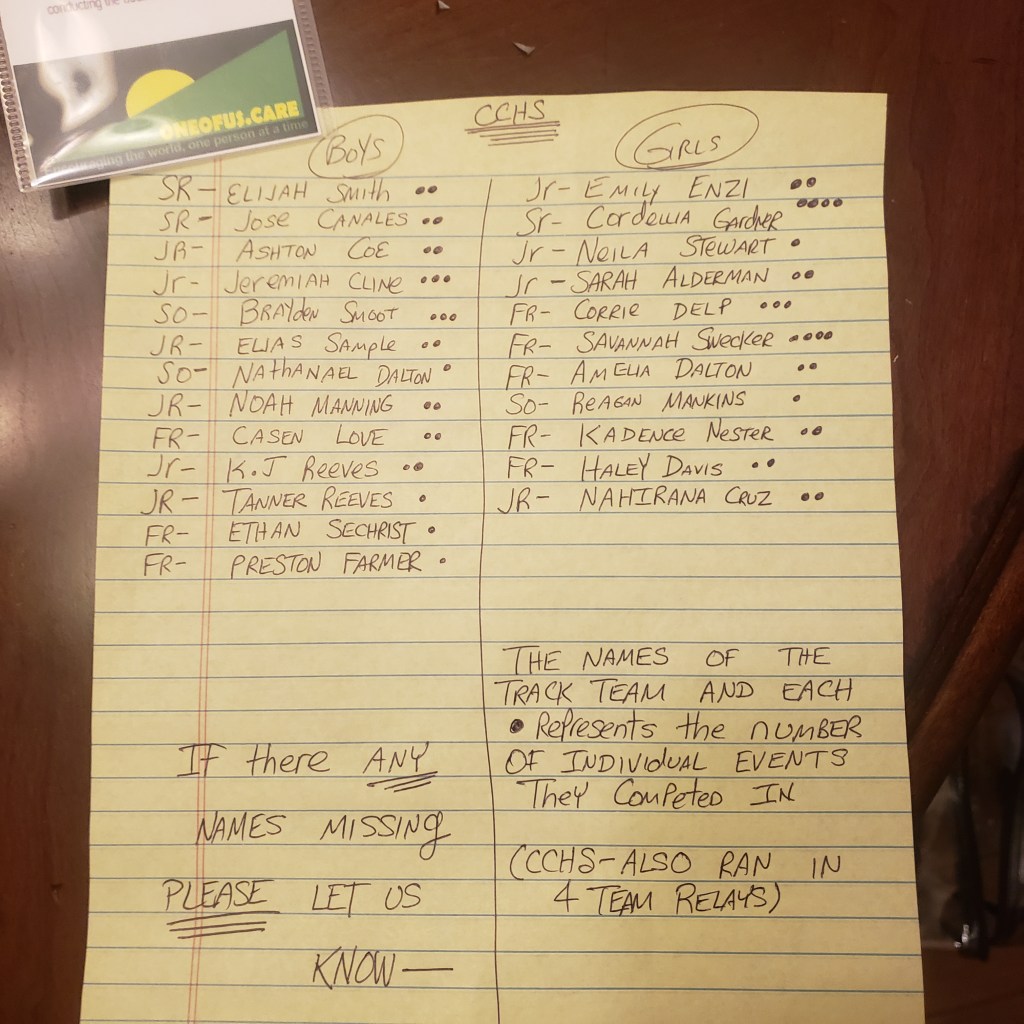 conducting the
ONEOFUS.CARE
the world, one person at a time
CCHS
BOYS
SR- ELIJAH Smith ••
SR- Jose CANALES ••
JR- ASHTON COE ••
Jr- Jeremiah CLINE •••
SO- BRAYDEN SMOOT •••
JR- ELIAS SAMPLE ••
SO- NAthANAEL DALTON •
JR- NOAH MANNING ••
FR- CASEN LOVE ••
Jr- K.J Reeves ••
JR- TANNER REEVES •
FR- ETHAN SECHRIST •
FR- PRESTON FARMER •
IF there ANY
NAMES MISSINg
PLEASE LET US
KNOW—
GIRLS
Jr- EMILY ENZI ••
Sr- Cordellia GARDNER ••••
Jr- NeILA STEWART •
Jr- SARAH ALDERMAN ••
FR- CORRIE DELP •••
FR- SAVANNAH Swecker ••••
FR- AMELIA DALTON ••
SO- REAGAN MANKINS •
FR- KADENCE NESTER ••
FR- HALEY DAVIS ••
JR- NAHIRANA CRUZ ••
THE NAMES OF THE
TRACK TEAM AND EACH
• Represents the NUMBER
OF INDIVIDUAL EVENTS
They Competed IN
(CCHS-ALSO RAN IN
4 TEAM RELAYS)